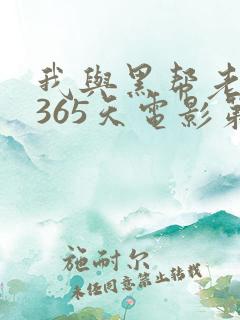 我與黑幫老
365天電影第
施耐尔
未经同意禁止转载